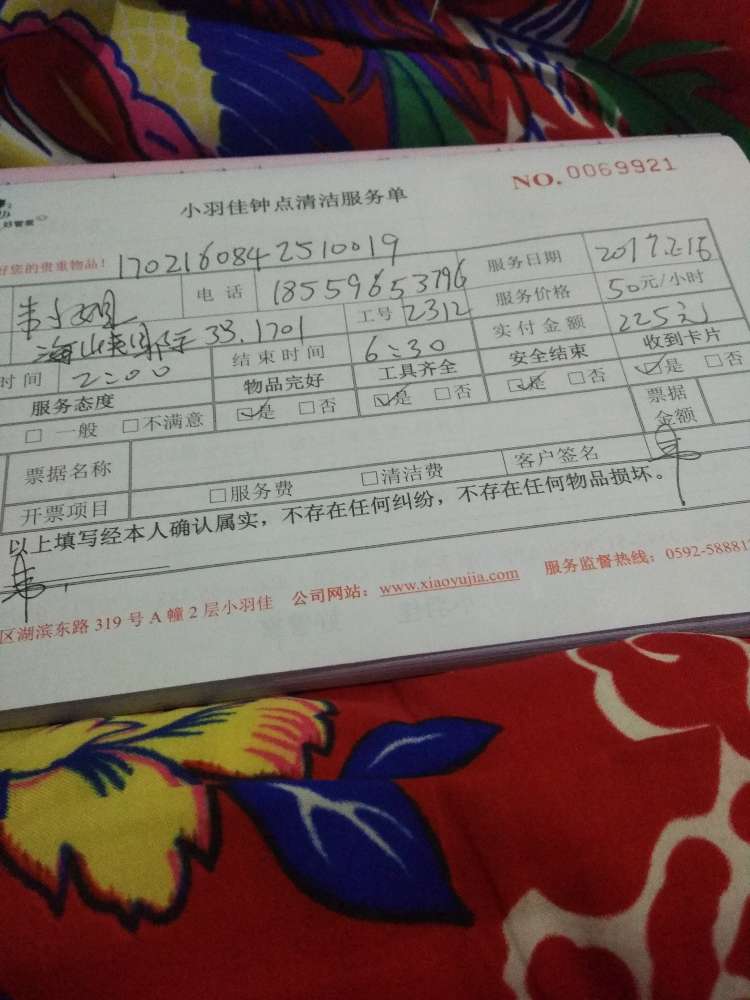 小羽佳钟点清洁服务单 NO. 0069921
好您的贵重物品! 1702160842510019
电 话 18559653796 服务日期 2017.2.16
33.1701 工号 2312 服务价格 50元/小时
时间 2:00 结束时间 6:30 实付金额 225元
服务态度 物品完好 工具齐全 安全结束 收到卡片
□ 一般 □不满意 ☑是 □否 ☑是 □否 ☑是 □否 ☑是 □否
票据名称 票据金额
开票项目 □服务费 □清洁费 客户签名
以上填写经本人确认属实，不存在任何纠纷，不存在任何物品损坏。
区湖滨东路 319 号 A 幢 2 层小羽佳 公司网站：www.xiaoyujia.com 服务监督热线：0592-58881